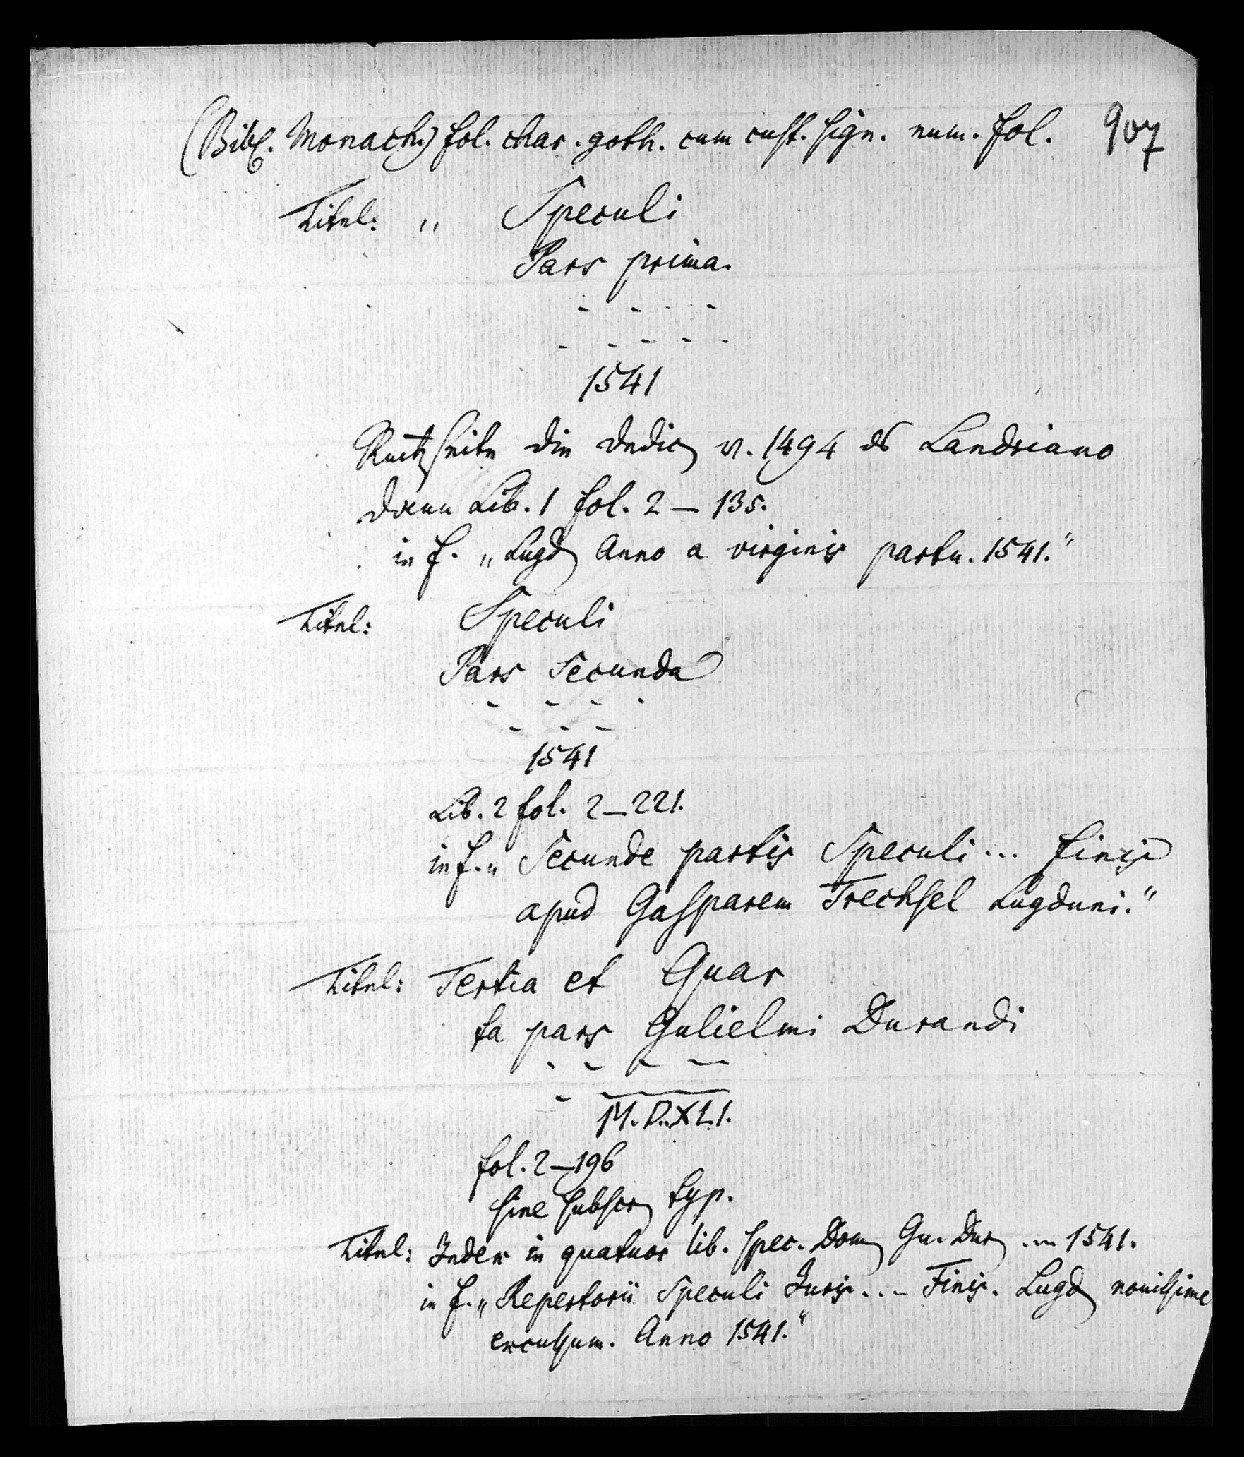 (Bibl. Monach.) fol. char. goth. cum cust. sign. num. fol. 907
Titel: „ Speculi
Pars prima.
- - - -
- - - - -
1541
Rückseite die Dedic. v. 1494 ds Landriano
dann Lib. 1 fol. 2 — 135.
in f. „Lugd. Anno a virginis partu. 1541.“
Titel: Speculi
Pars Secunda
- - - -
- - -
1541
Lib. 2 fol. 2—221.
in f. „ Secunde partis Speculi ... finis
apud Gasparem Trechsel Lugduni.“
Titel: Tertia et Quar
ta pars Gulielmi Durandi
- - - —
- —
M.D.XLI.
fol. 2—196
sine subscr. typ.
Titel: Index in quatuor lib. spec. Dom. Gu. Dur. ... 1541.
in f. „Repertorii Speculi Juris ... Finis. Lugd. nouissime
excussum. Anno 1541.“